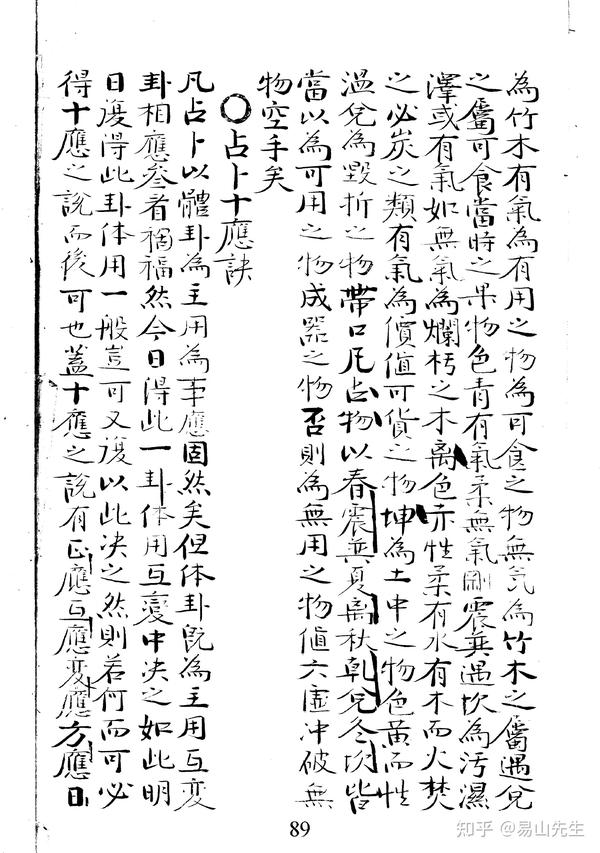 為竹木有氣為有用之物為可食之物無氣為竹木之屬遇兌
之屬可食當時之果物色青有氣柔無氣剛震巽遇坎為污濕
澤或有氣如無氣為爛朽之木离色赤性柔有水有木而火焚
之必炭之類有氣為價值可貨之物坤為土中之物色黃而性
溫兌為毀折之物帶口凡占物以春震巽夏离秋乹兌冬坎皆
當以為可用之物成器之物否則為無用之物值六虛冲破無
物空手矣
○占卜十應訣
凡占卜以體卦為主用為事應固然矣但体卦既為主用互变
卦相應叅看禍福然今日得此一卦体用互變中决之如此明
日復得此卦体用一般豈可又復以此决之然則若何而可必
得十應之說而後可也蓋十應之說有正應互應变應方應日
89
知乎 @易山先生